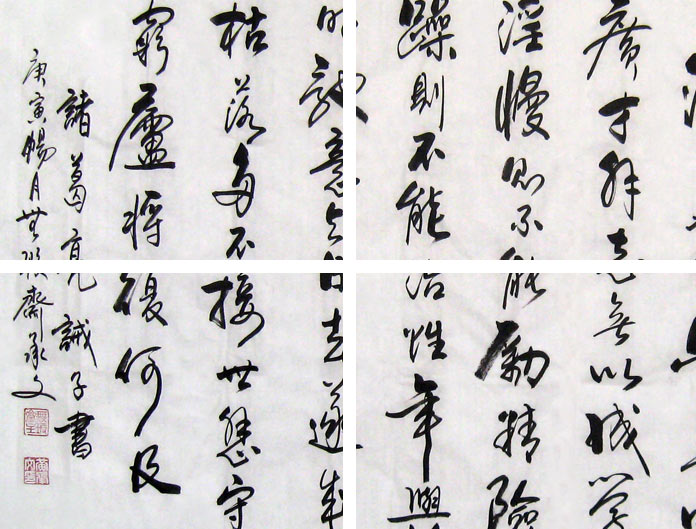 廣才非志無以成學
淫慢則不能勵精險
躁則不能治性年與
時馳意與日去遂成
枯落多不接世悲守
窮廬將復何及
諸葛亮誡子書
庚寅暢月 齋承文